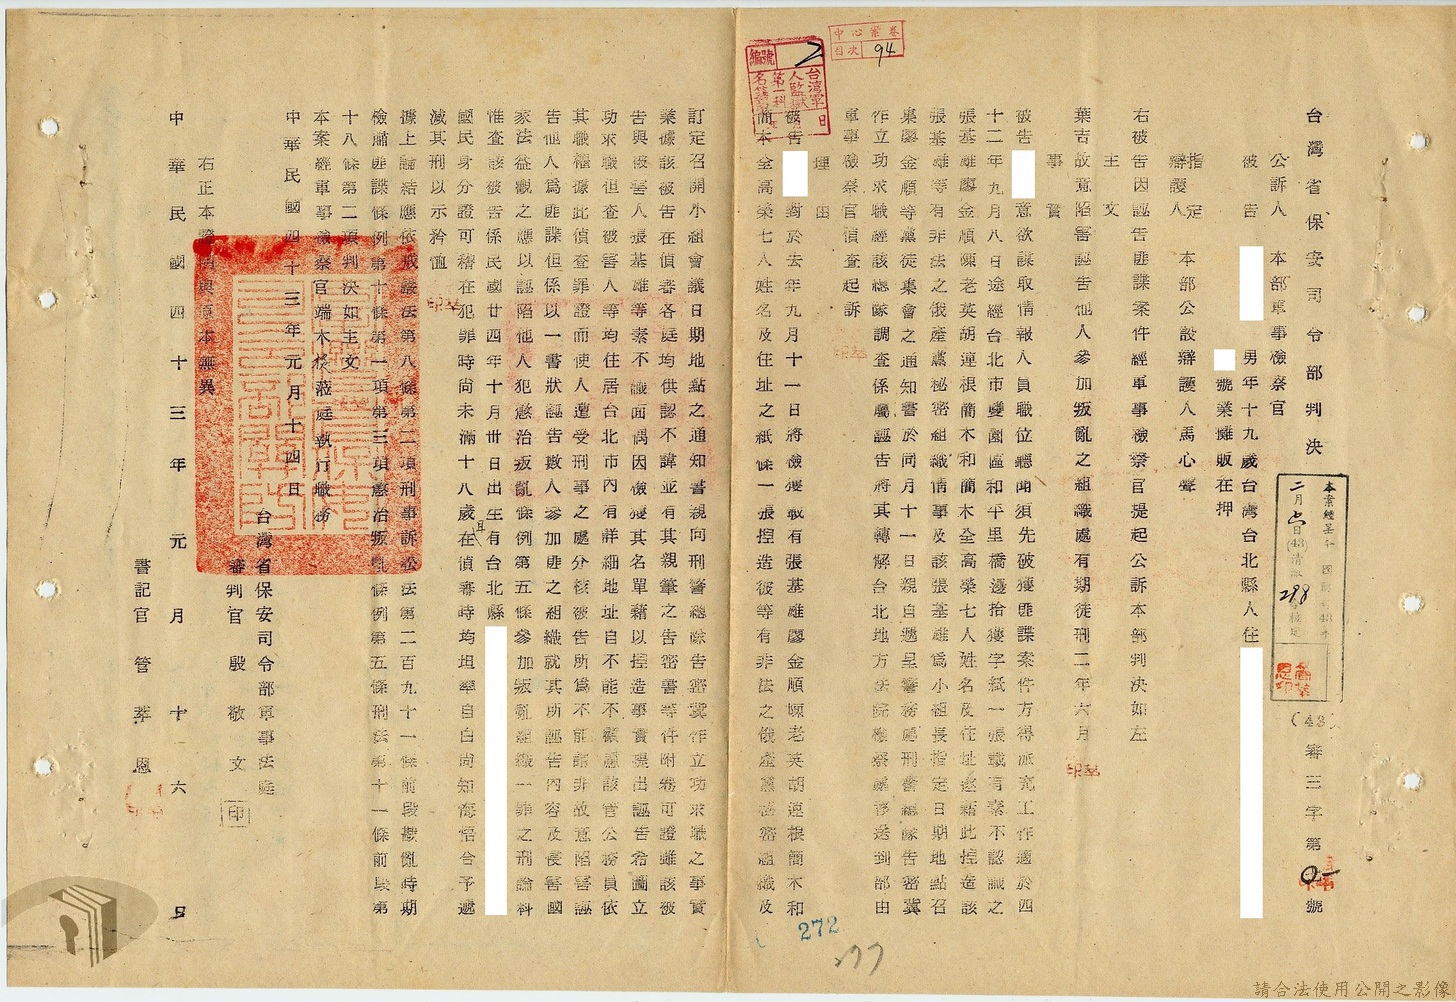 台灣省保安司令部判決
(43)審三字第號
公訴人 本部軍事檢察官
被告 男年十九歲台灣台北縣人住
號業攤販在押
指定辯護人 本部公設辯護人馬心聲
右被告因誣告匪諜案件經軍事檢察官提起公訴本部判決如左
主文
葉吉故意陷害誣告他人參加叛亂之組織處有期徒刑二年六月
事實
被告 意欲謀取情報人員職位聽聞須先破獲匪諜案件方得派充工作適於四
十二年九月八日途經台北市雙園區和平里橋邊拾獲字紙一張載有素不認識之
張基雄廖金順陳老英胡連根簡木和簡木全高榮七人姓名及住址遂藉此捏造該
張基雄等有非法之俄產黨秘密組織情事及該張基雄為小組長指定日期地點召
集廖金順等黨徒集會之通知書於同月十一日親自遞呈警務處刑警總隊告密冀
作立功求職經該總隊調查係屬誣告將其轉解台北地方法院檢察處移送到部由
軍事檢察官偵查起訴
理由
被告 對於去年九月十一日將檢獲載有張基雄廖金順陳老英胡連根簡木和
簡木全高榮七人姓名及住址之紙條一張捏造彼等有非法之俄產黨秘密組織及
訂定召開小組會議日期地點之通知書親向刑警總隊告密冀作立功求職之事實
業據該被告在偵審各庭均供認不諱並有其親筆之告密書等件附卷可證雖該被
告與被害人張基雄等素不識面偶因檢獲其名單藉以捏造事實提出誣告希圖立
功求職但查被害人等均住居台北市內有詳細地址自不能不顧慮該官公務員依
其職權據此偵查罪證而使人遭受刑事之處分核被告所為不能謂非故意陷害誣
告他人為匪諜但係以一書狀誣告數人參加匪之組織就其所誣告內容及侵害國
家法益觀之應以誣陷他人犯懲治叛亂條例第五條參加叛亂組織一罪之刑論科
惟查該被告係民國廿四年十月卅日出生有台北縣
國民身分證可稽在犯罪時尚未滿十八歲在偵審時均坦率自白尚知悔悟合予遞
減其刑以示矜恤
據上論結應依戒嚴法第八條第二項刑事訴訟法第二百九十一條前段戡亂時期
檢肅匪諜條例第十條第一項第三項懲治叛亂條例第五條刑法第十一條前段第
十八條第二項判決如主文
本案經軍事檢察官端木蒞庭執行職務
中華民國四十三年元月十四日
台灣省保安司令部軍事法庭
審判官 殷敬文
印
右正本證明與原本無異
書記官 管萃恩
中華民國四十三年元月十六日
本案經呈
二月日(43)清
288
核定
中心案卷
目次 94
編號 2
台灣軍人監獄第一科名籍
272
277
請合法使用公開之影像